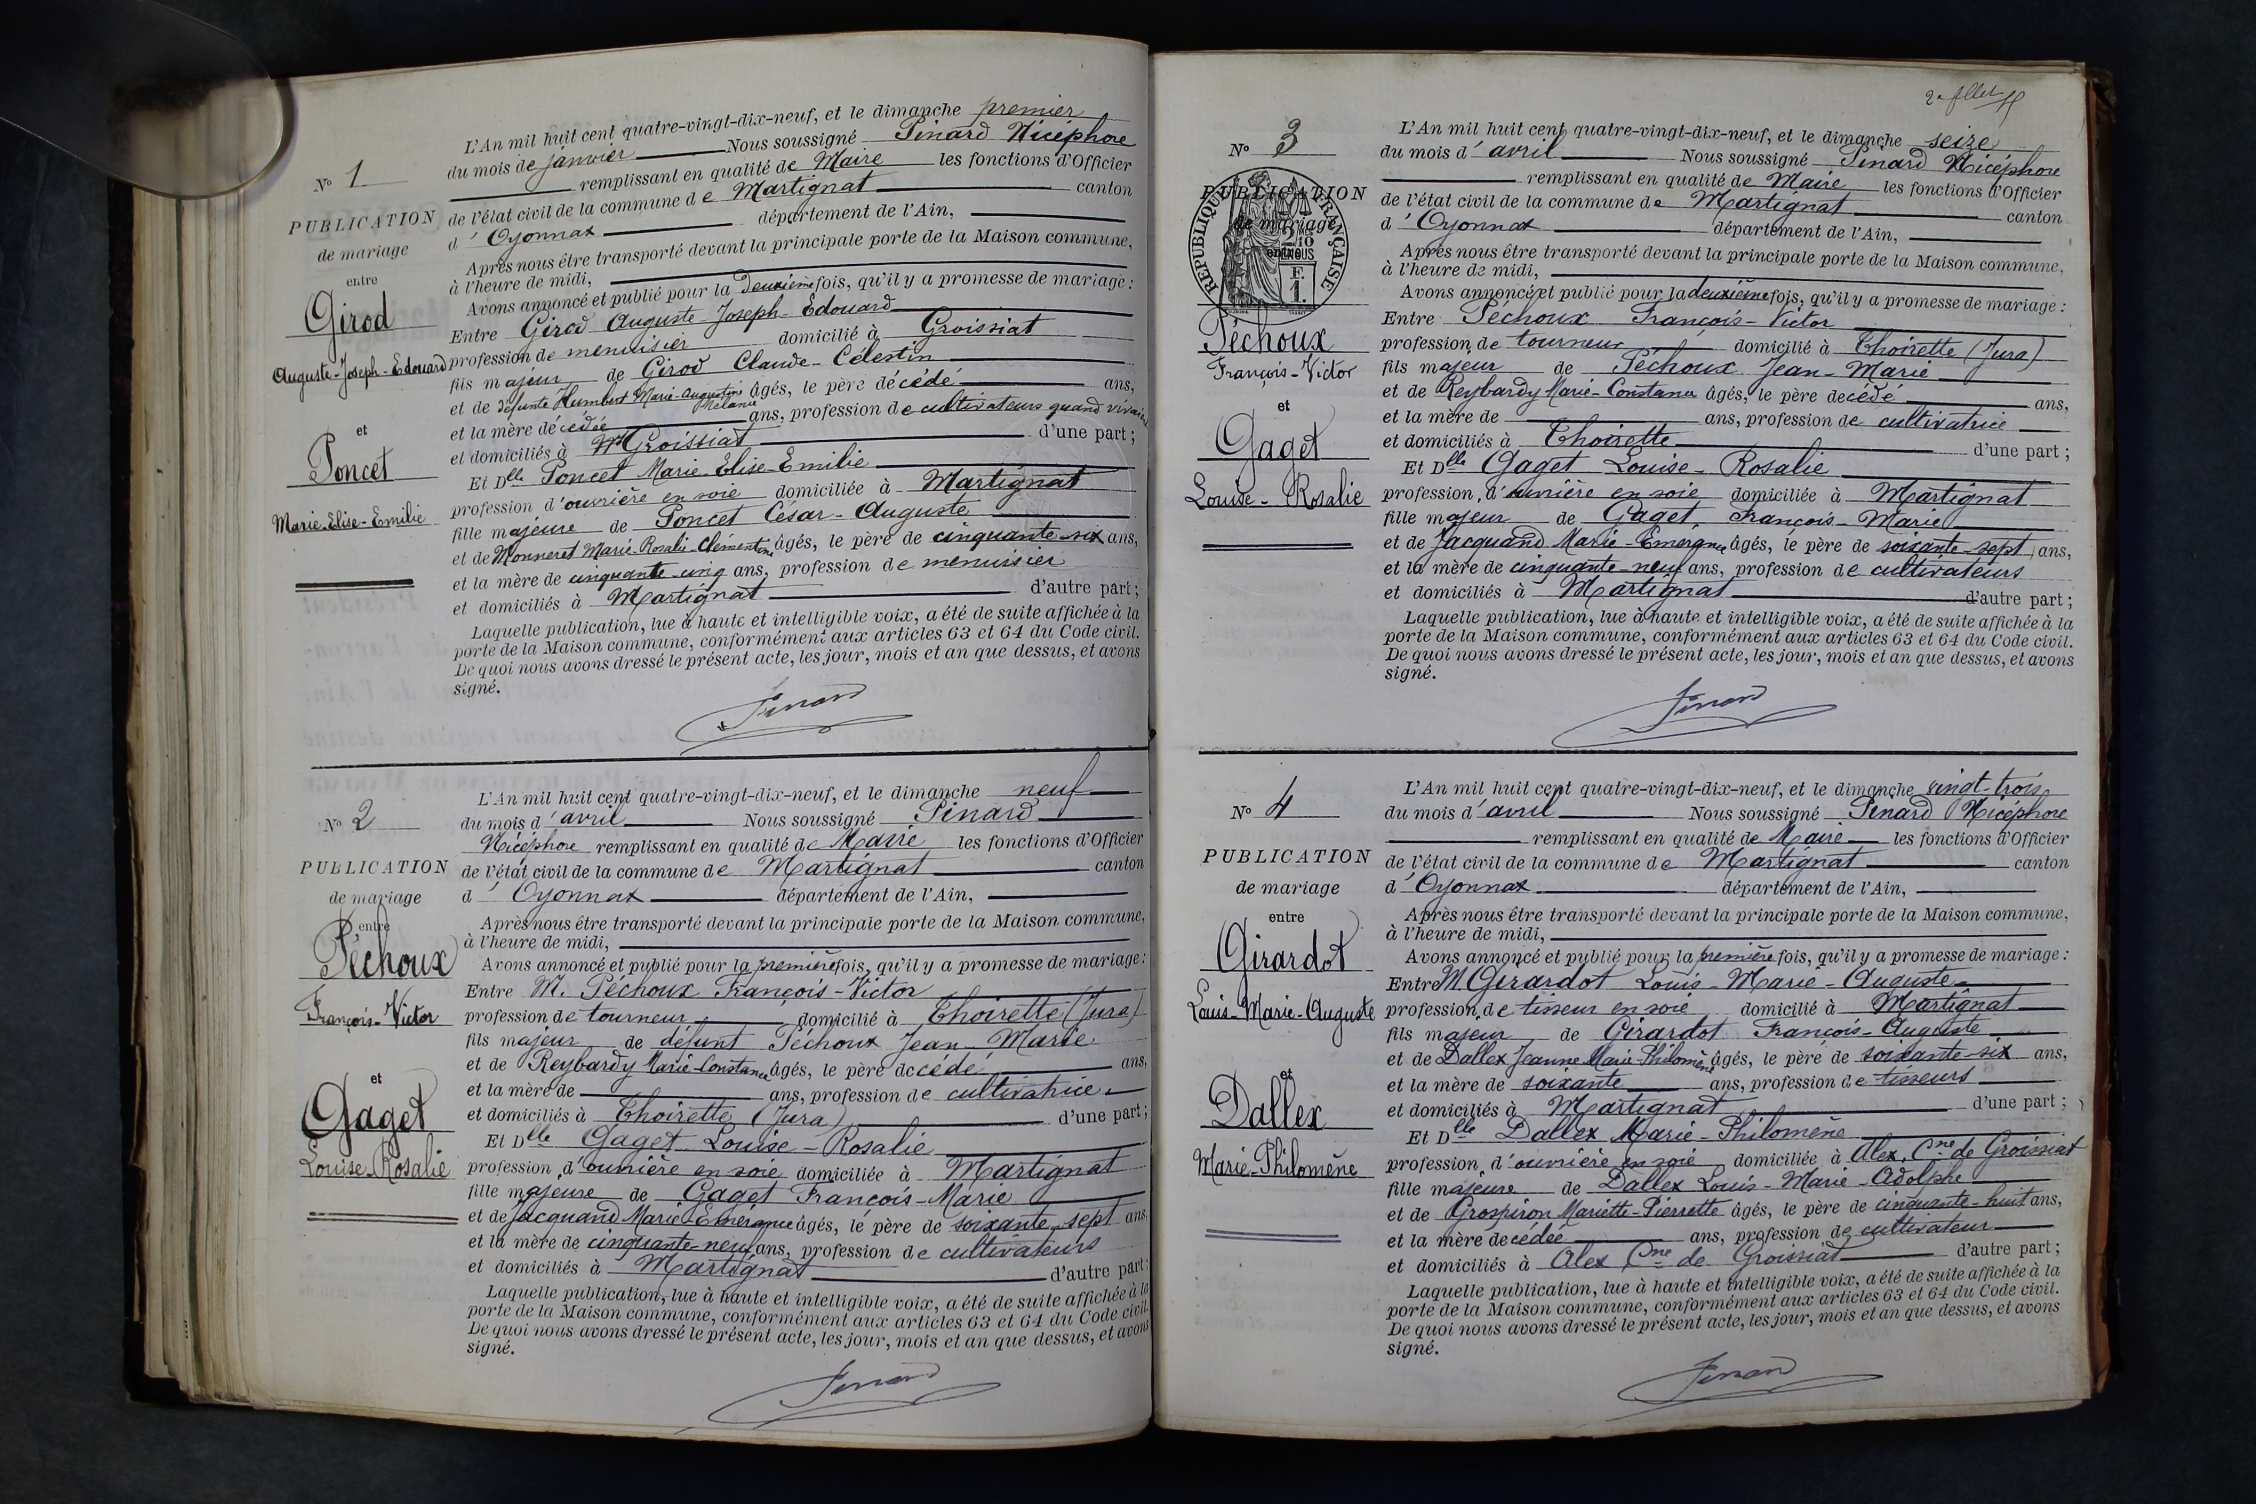 N° 1
PUBLICATION
de mariage
entre
Girod
Auguste-Joseph-Edouard
et
Poncet
Marie-Elise-Emilie
L'An mil huit cent quatre-vingt-dix-neuf, et le dimanche premier
du mois de janvier Nous soussigné Pinard Nicéphore
remplissant en qualité de Maire les fonctions d'Officier
de l'état civil de la commune de Martignat canton
d'Oyonnax département de l'Ain,
Après nous être transporté devant la principale porte de la Maison commune,
à l'heure de midi,
Avons annoncé et publié pour la deuxième fois, qu'il y a promesse de mariage :
Entre Girod Auguste Joseph-Edouard
profession de menuisier domicilié à Groissiat
fils majeur de Girod Claude-Célestin
et de défunte Humbert Marie-Augustine Mélanie âgés, le père décédé ans,
et la mère décédée ans, profession de cultivateurs quand vivaient
et domiciliés à Groissiat d'une part ;
Et Dlle Poncet Marie-Elise-Emilie
profession d'ouvrière en soie domiciliée à Martignat
fille majeure de Poncet César-Auguste
et de Monneret Marie-Rosalie-Clémentine âgés, le père de cinquante-six ans,
et la mère de cinquante-cinq ans, profession de menuisier
et domiciliés à Martignat d'autre part ;
Laquelle publication, lue à haute et intelligible voix, a été de suite affichée à la
porte de la Maison commune, conformément aux articles 63 et 64 du Code civil.
De quoi nous avons dressé le présent acte, les jour, mois et an que dessus, et avons
signé.
Pinard
N° 2
PUBLICATION
de mariage
entre
Péchoux
François-Victor
et
Gaget
Louise-Rosalie
L'An mil huit cent quatre-vingt-dix-neuf, et le dimanche neuf
du mois d'avril Nous soussigné Pinard
Nicéphore remplissant en qualité de Maire les fonctions d'Officier
de l'état civil de la commune de Martignat canton
d'Oyonnax département de l'Ain,
Après nous être transporté devant la principale porte de la Maison commune,
à l'heure de midi,
Avons annoncé et publié pour la première fois, qu'il y a promesse de mariage :
Entre M. Péchoux François-Victor
profession de tourneur domicilié à Thoirette (Jura)
fils majeur de défunt Péchoux Jean-Marie
et de Reybardy Marie-Constance âgés, le père décédé ans,
et la mère de ans, profession de cultivatrice
et domiciliés à Thoirette (Jura) d'une part ;
Et Dlle Gaget Louise-Rosalie
profession d'ouvrière en soie domiciliée à Martignat
fille majeure de Gaget François-Marie
et de Jacquand Marie-Emérance âgés, le père de soixante-sept ans,
et la mère de cinquante-neuf ans, profession de cultivateurs
et domiciliés à Martignat d'autre part ;
Laquelle publication, lue à haute et intelligible voix, a été de suite affichée à la
porte de la Maison commune, conformément aux articles 63 et 64 du Code civil.
De quoi nous avons dressé le présent acte, les jour, mois et an que dessus, et avons
signé.
Pinard
N° 3
PUBLICATION
de mariage
entre
RÉPUBLIQUE FRANÇAISE
Péchoux
François-Victor
et
Gaget
Louise-Rosalie
L'An mil huit cent quatre-vingt-dix-neuf, et le dimanche seize
du mois d'avril Nous soussigné Pinard Nicéphore
remplissant en qualité de Maire les fonctions d'Officier
de l'état civil de la commune de Martignat canton
d'Oyonnax département de l'Ain,
Après nous être transporté devant la principale porte de la Maison commune,
à l'heure de midi,
Avons annoncé et publié pour la deuxième fois, qu'il y a promesse de mariage :
Entre Péchoux François-Victor
profession de tourneur domicilié à Thoirette (Jura)
fils majeur de Péchoux Jean-Marie
et de Reybardy Marie-Constance âgés, le père décédé ans,
et la mère de ans, profession de cultivatrice
et domiciliés à Thoirette d'une part ;
Et Dlle Gaget Louise-Rosalie
profession d'ouvrière en soie domiciliée à Martignat
fille majeur de Gaget, François-Marie
et de Jacquand Marie-Emérance âgés, le père de soixante-sept ans,
et la mère de cinquante-neuf ans, profession de cultivateurs
et domiciliés à Martignat d'autre part ;
Laquelle publication, lue à haute et intelligible voix, a été de suite affichée à la
porte de la Maison commune, conformément aux articles 63 et 64 du Code civil.
De quoi nous avons dressé le présent acte, les jour, mois et an que dessus, et avons
signé.
Pinard
N° 4
PUBLICATION
de mariage
entre
Girardot
Louis-Marie-Auguste
et
Dallex
Marie-Philomène
L'An mil huit cent quatre-vingt-dix-neuf, et le dimanche vingt-trois
du mois d'avril Nous soussigné Pinard Nicéphore
remplissant en qualité de Maire les fonctions d'Officier
de l'état civil de la commune de Martignat canton
d'Oyonnax département de l'Ain,
Après nous être transporté devant la principale porte de la Maison commune,
à l'heure de midi,
Avons annoncé et publié pour la première fois, qu'il y a promesse de mariage :
Entre M. Girardot Louis-Marie-Auguste
profession de tisseur en soie domicilié à Martignat
fils majeur de Girardot François-Auguste
et de Dallex Jeanne Marie-Philomène âgés, le père de soixante-six ans,
et la mère de soixante ans, profession de tisseurs
et domiciliés à Martignat d'une part ;
Et Dlle Dallex Marie-Philomène
profession d'ouvrière en soie domiciliée à Alex, Cne de Groissiat
fille majeure de Dallex Louis-Marie-Adolphe
et de Grospiron Mariette-Pierrette âgés, le père de cinquante-huit ans,
et la mère décédée ans, profession de cultivateur
et domiciliés à Alex Cne de Groissiat d'autre part ;
Laquelle publication, lue à haute et intelligible voix, a été de suite affichée à la
porte de la Maison commune, conformément aux articles 63 et 64 du Code civil.
De quoi nous avons dressé le présent acte, les jour, mois et an que dessus, et avons
signé.
Pinard